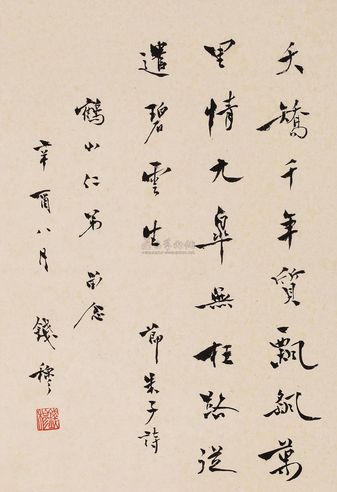 夭矯千年質飄颻萬
里情九皋無枉路從
遣碧雲生 節朱子詩
鶴山仁弟留念
辛酉八月 錢穆